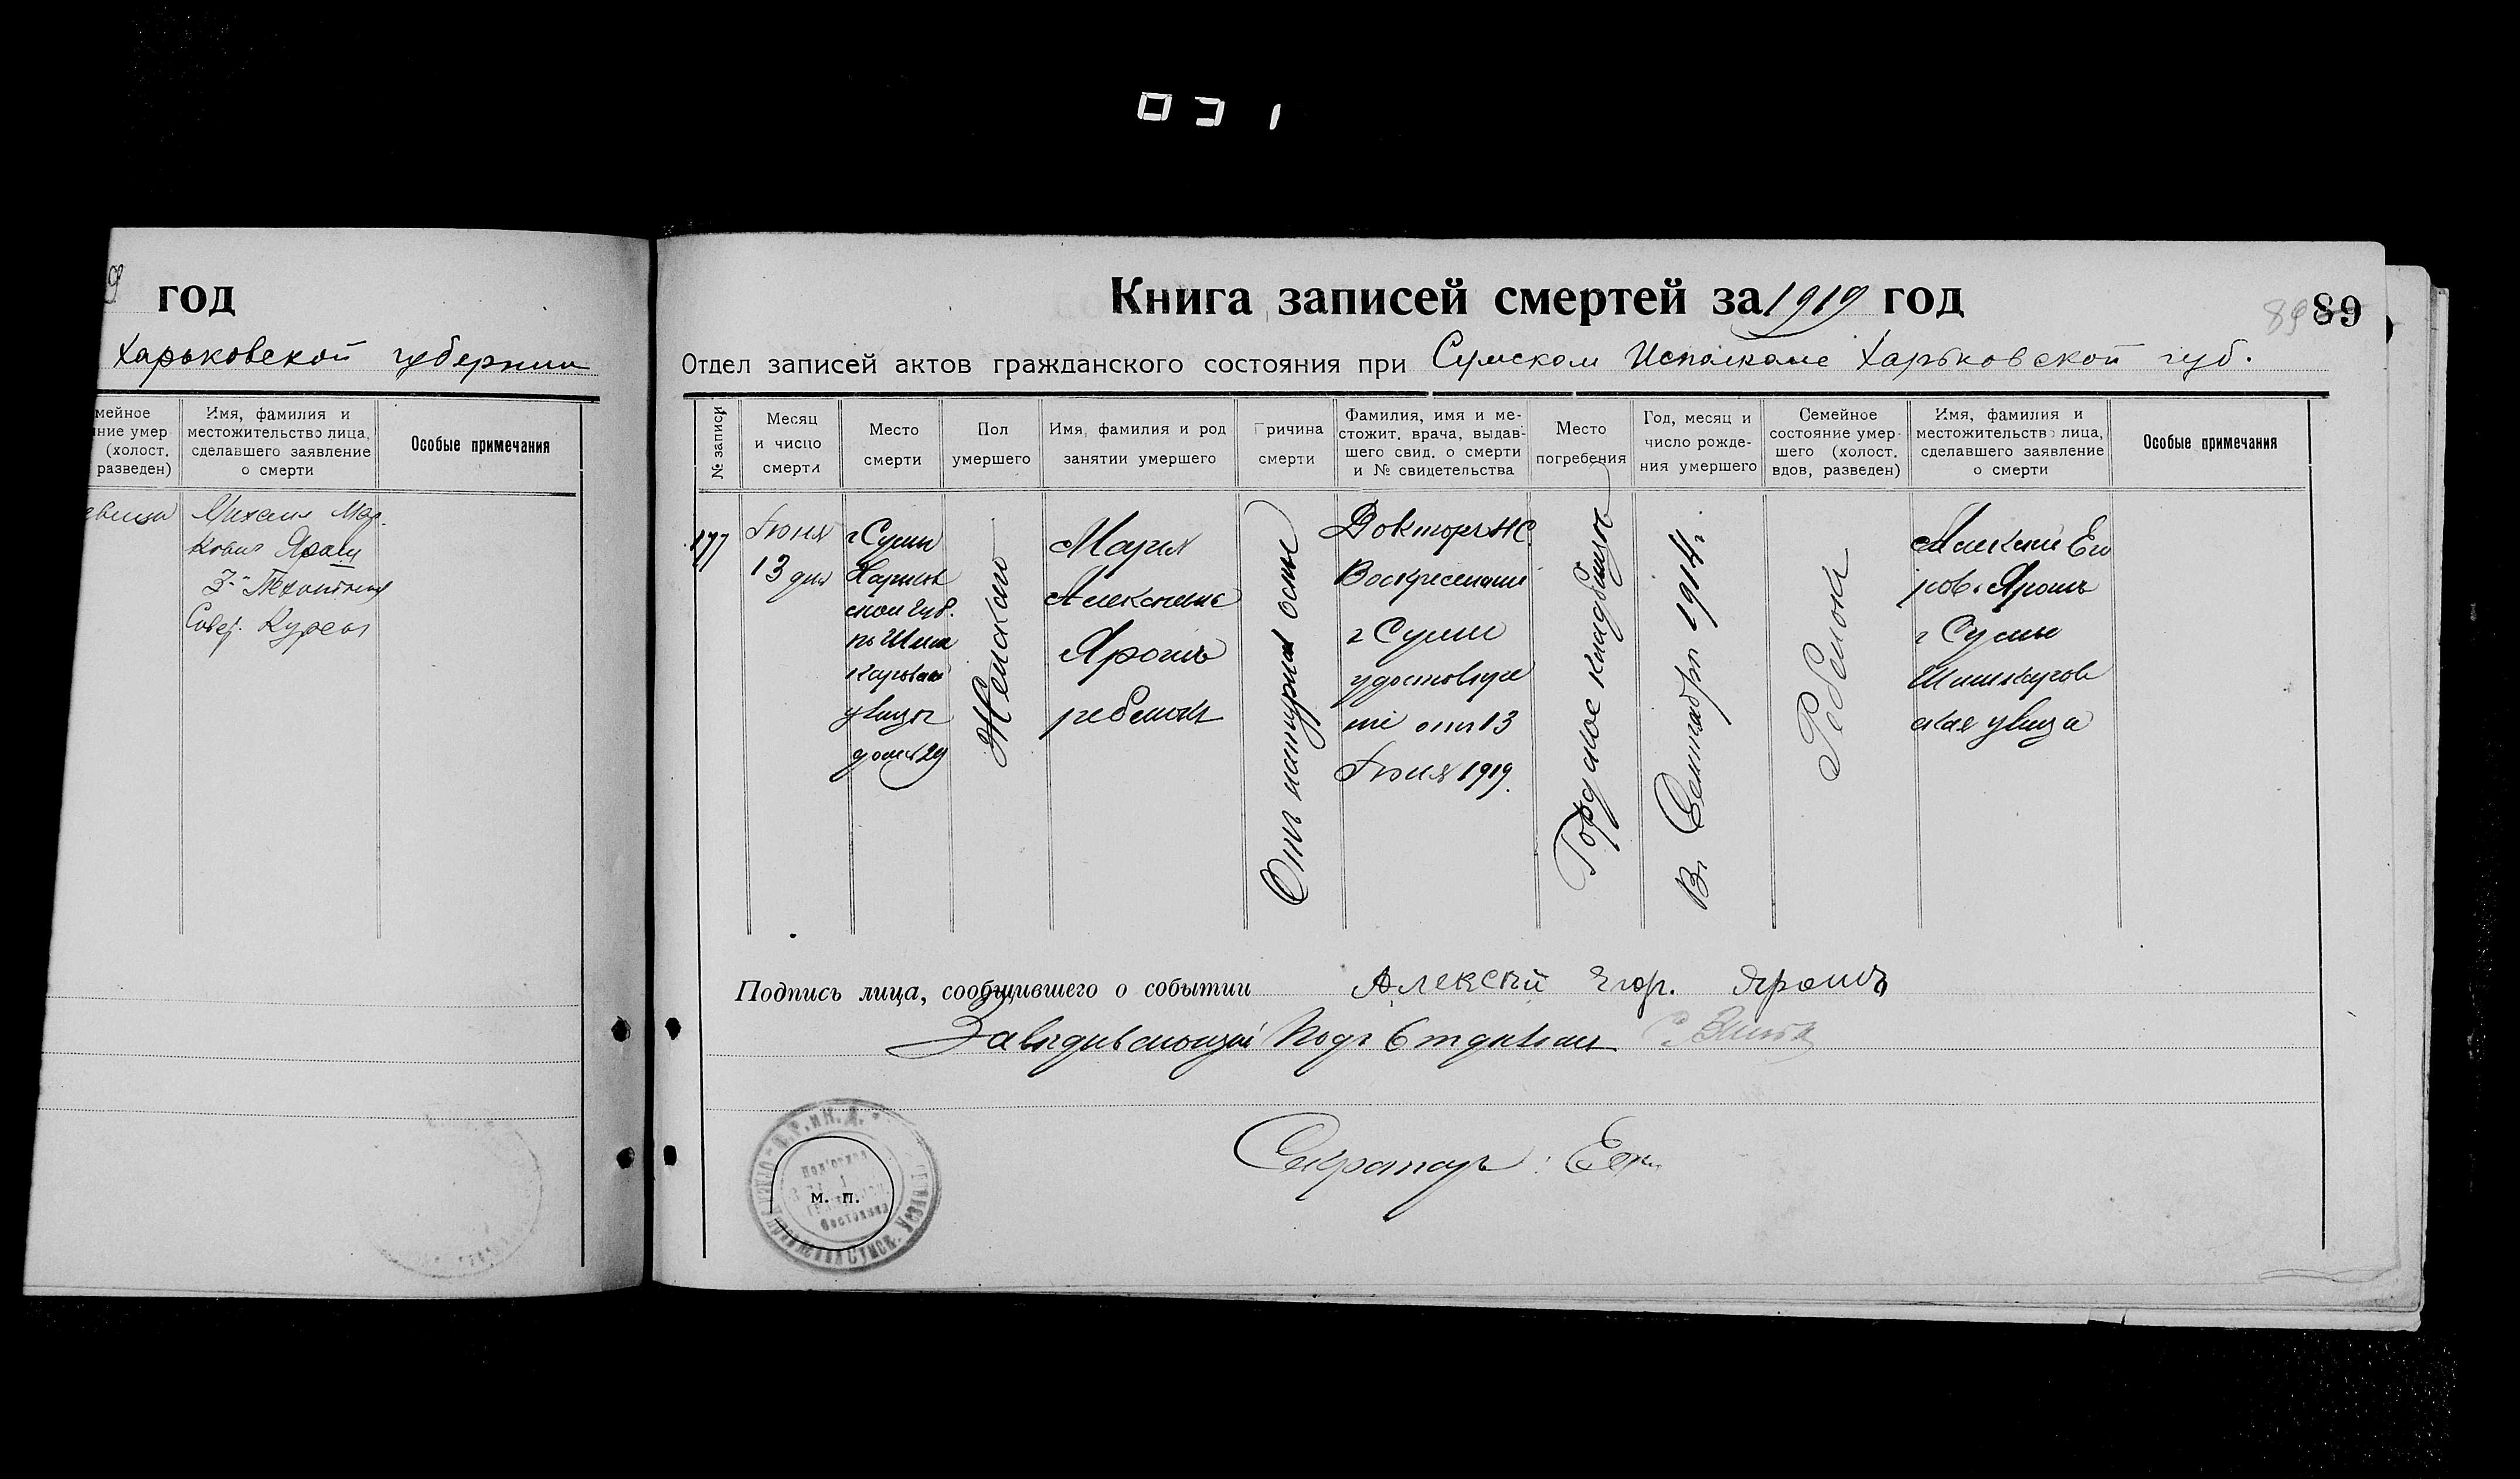 031
9 год
Харьковской губернии
мейное
ние умер
(холост.
разведен)
Имя, фамилия и
местожительство лица,
сделавшего заявление
о смерти
Особые примечания
Михаил Мар.
кович Ярош
Совет. Курсы
Книга записей смертей за 1919 год
89 89
Отдел записей актов гражданского состояния при Сумском Исполкоме Харьковской губ.
№ записи
Месяц
и число
смерти
Место
смерти
Пол
умершего
Имя, фамилия и род
занятии умершего
Причина
смерти
Фамилия, имя и ме-
стожит. врача, выдав-
шего свид. о смерти
и № свидетельства
Место
погребения
Год, месяц и
число рожде-
ния умершего
Семейное
состояние умер-
шего (холост.
вдов, разведен)
Имя, фамилия и
местожительство лица,
сделавшего заявление
о смерти
Особые примечания
177
Іюня
13 дня
г Сумы
Харьков
ской губ.
по Шиш
каревской
улицы
домъ 29
Женскаго
Марія
Алексеева
Ярошъ
ребенокъ
Отъ натуральной оспы
Докторъ НС.
Воскресенский
г Сумы
удостовѣре
ніе отъ 13
Іюня 1919.
Городское кладбище
Въ Сентябрѣ 1914 г.
Ребенок
Алексей Его
ров. Ярошъ
г Сумы
Шишкарев
ская улица
Подпись лица, сообщившего о событии Алексѣй Егор. Ярошъ
Завѣдывающій Подъ Отдѣломъ
Секретарь:
М. П.
Под'отдел
Состояния